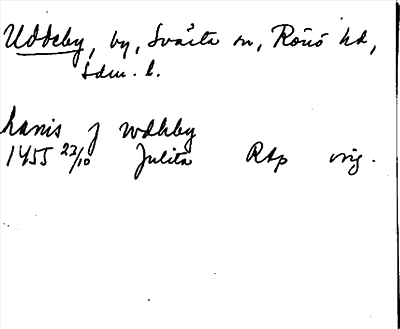 Uddeby, by, Svärta sn, Rönö hd,
Sdm. l.
hanis j wdhby
1455 22/10 Julita RAp orig.